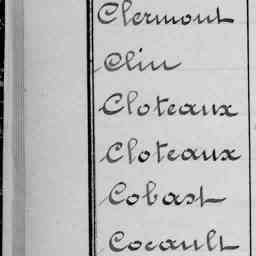 Clermont
Clin
Cloteaux
Cloteaux
Cobast
Cocault